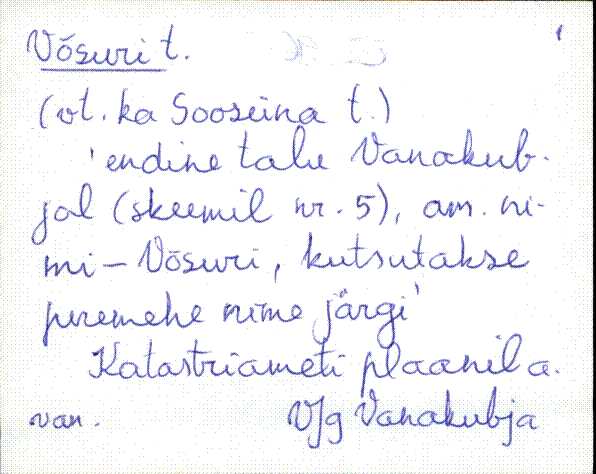 Võsuri t.
1
(vt. ka Sooseina t.)
'endine talu Vanakub-
jal (skeemil nr. 5), am. ni-
mi - Võsuri, kutsutakse
peremehe nime järgi'
Katastriameti plaanil a.
van. VJg Vanakubja